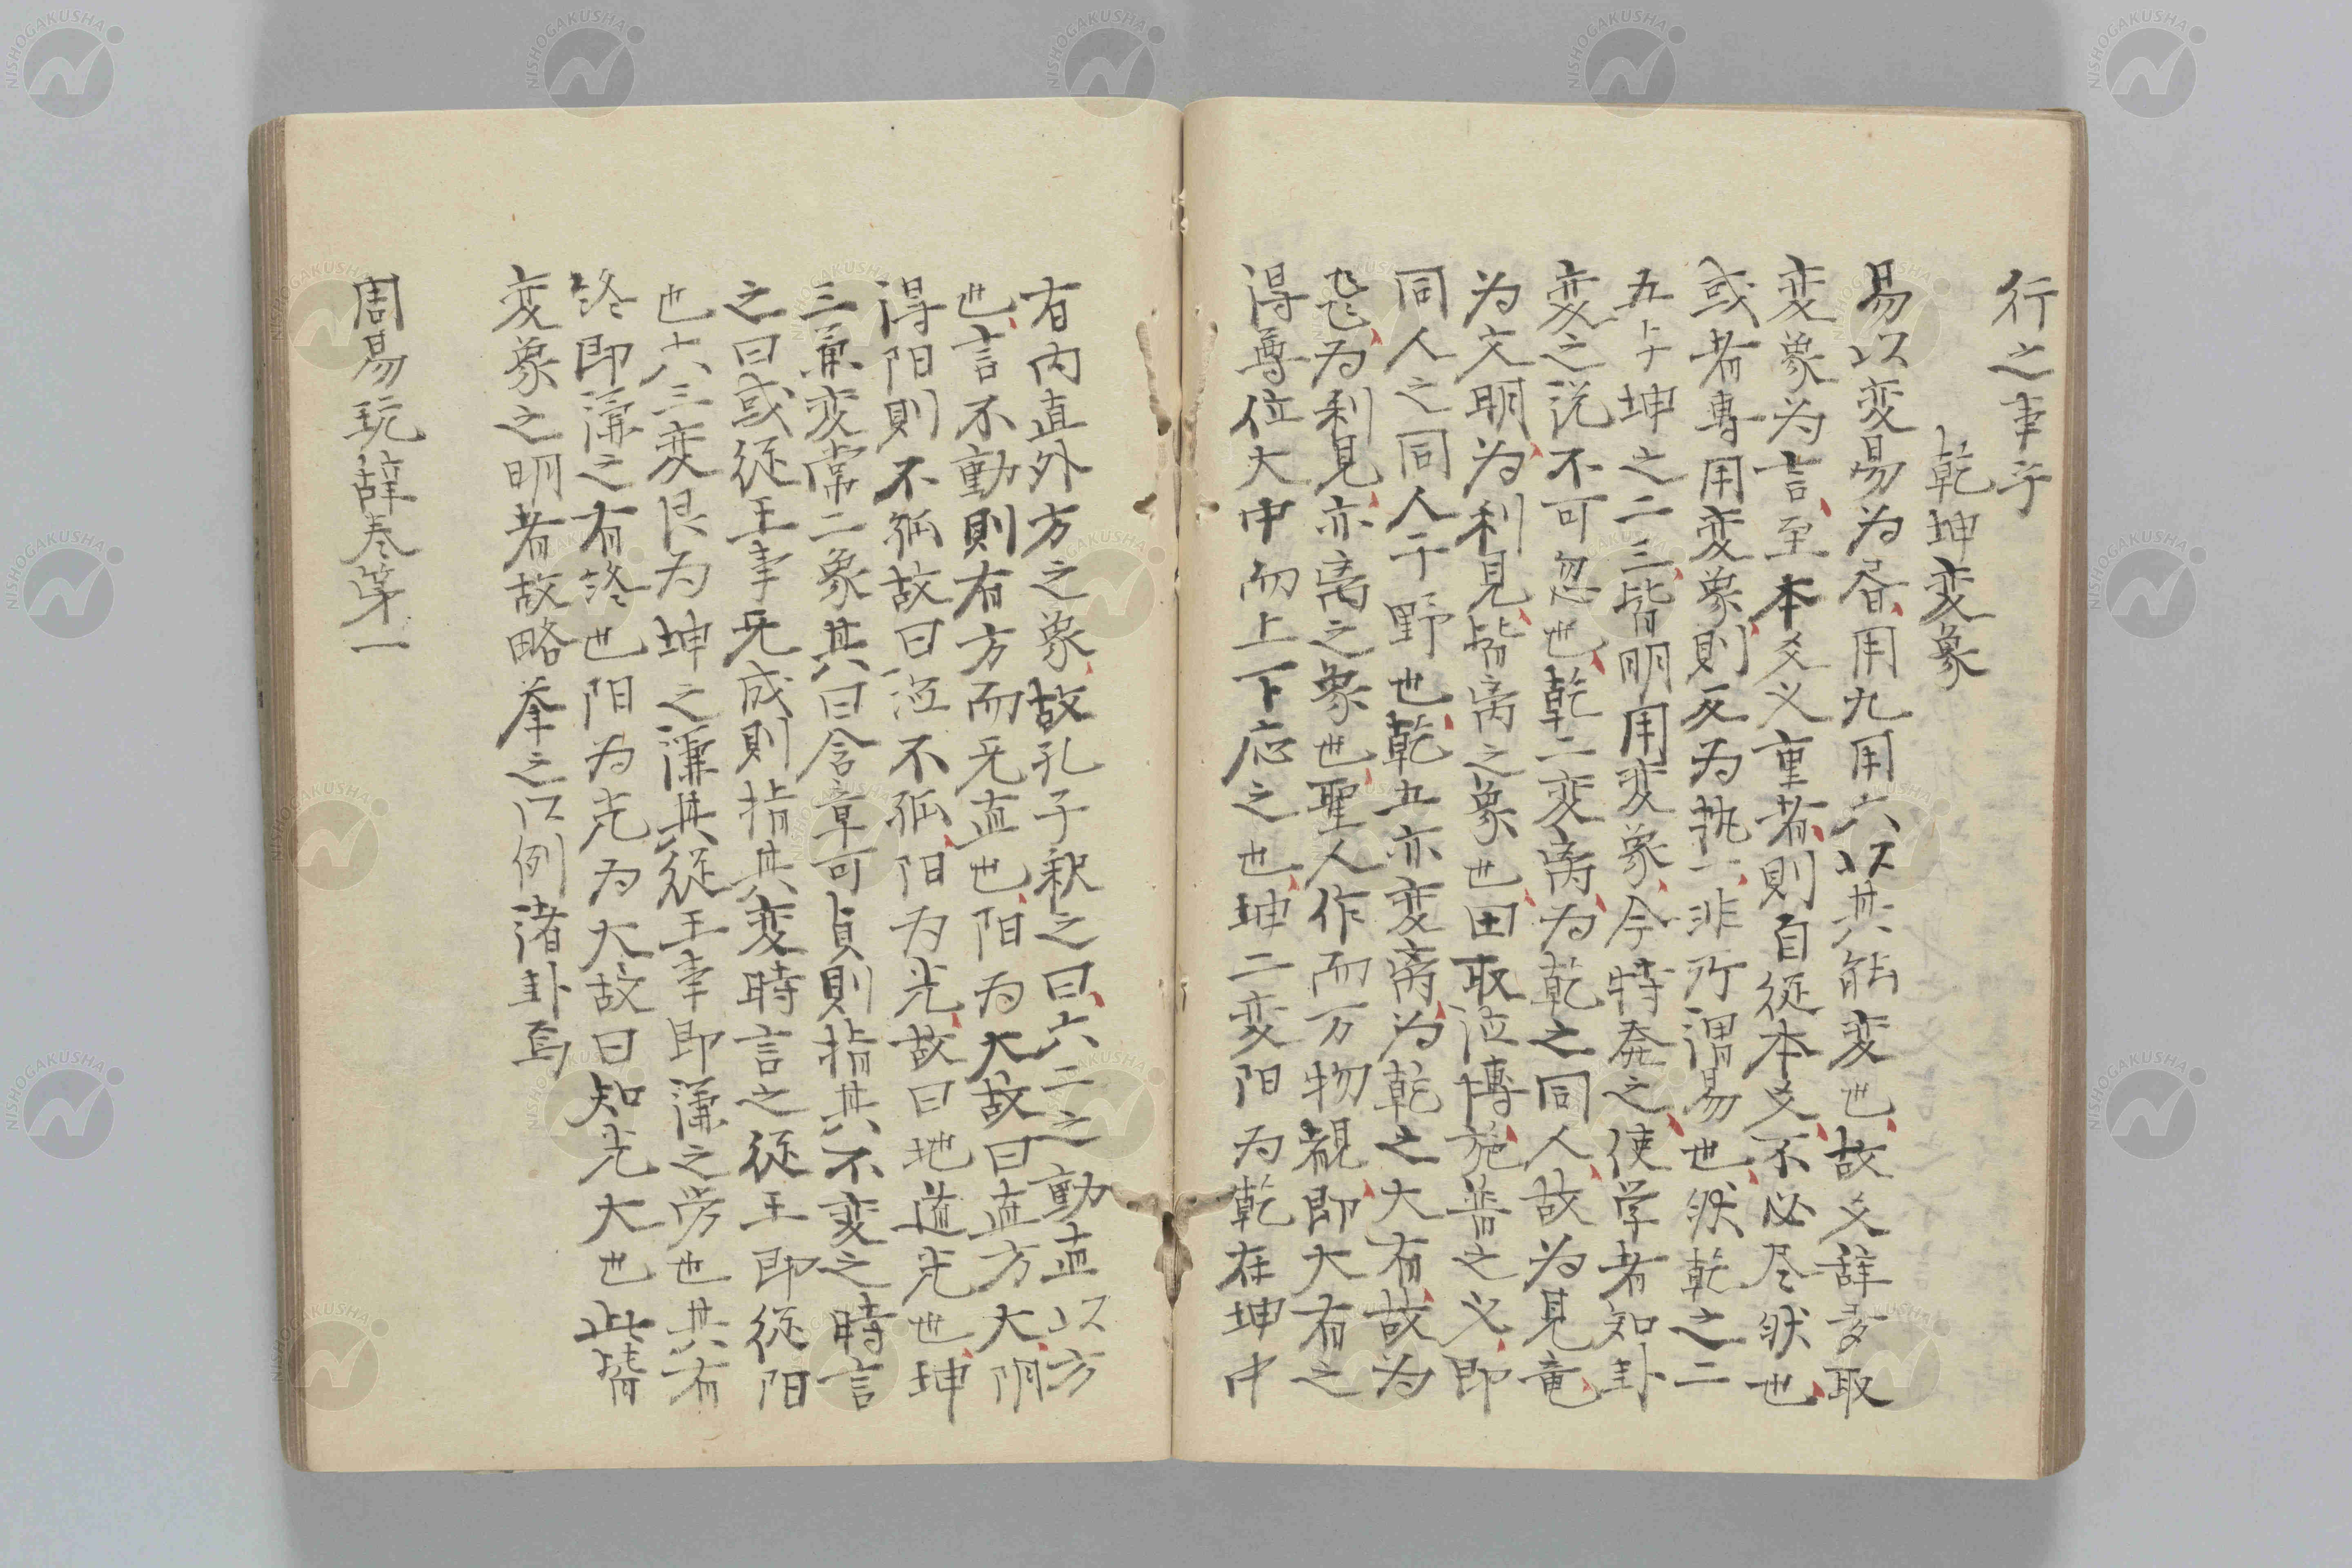 行之事乎
乾坤変象
易以変易為昼用九用六以其能変也故爻辞多取
変象為言至本爻义重者則自従本爻不必尽然也
或者専用変象則反為执一非所謂易也然乾之二
五上下坤之二三皆明用変象今特発之使学者知卦
変之説不可忽也乾二変离為乾之同人故為見竜
為文明為利見皆离之象也田取位博施普之义即
同人之同人于野也乾五亦変离為乾之大有故為
飞為利見亦离之象也聖人作而万物覩即大有之
得尊位大中而上下应之也坤二変阳為乾在坤中
有内直外方之象故孔子釈之曰六二之動直以方
也言不動則有方而无直也阳為大故曰直方大阴
得阳則不孤故曰德不孤阳為光故曰地道光也坤
三兼変常二象其曰含章可貞則指其不変之時言
之曰或従王事无成則指其変時言之従王即従阳
也六三変艮為坤之谦其従王事即谦之労也其有
終即谦之有終也阳為光為大故曰知光大也此皆
変象之明者故略挙之以例諸卦焉
周易玩辞巻第一